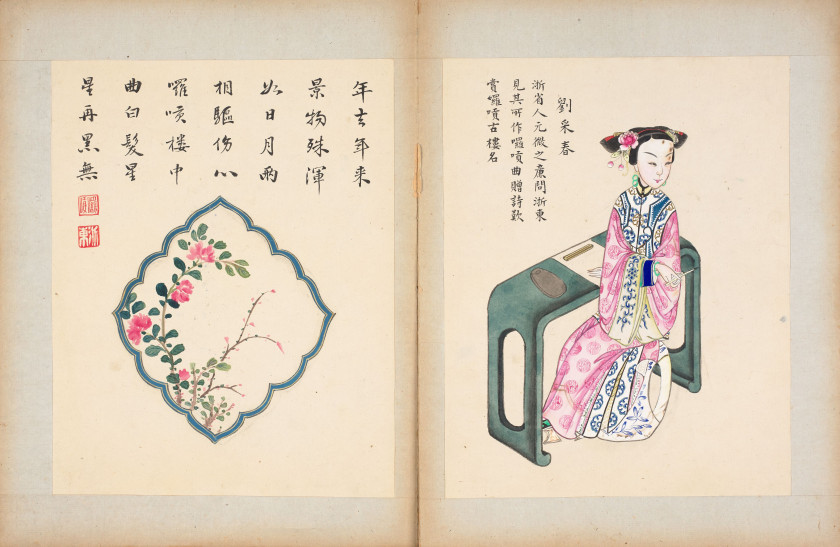 劉采春
浙省人元微之廉問浙東
見其所作囉嗊曲贈詩歎
賞囉嗊古樓名
年去年来
景物殊渾
如日月兩
相驅傷心
囉嗊樓中
曲白髮星
星再黑無
浙東